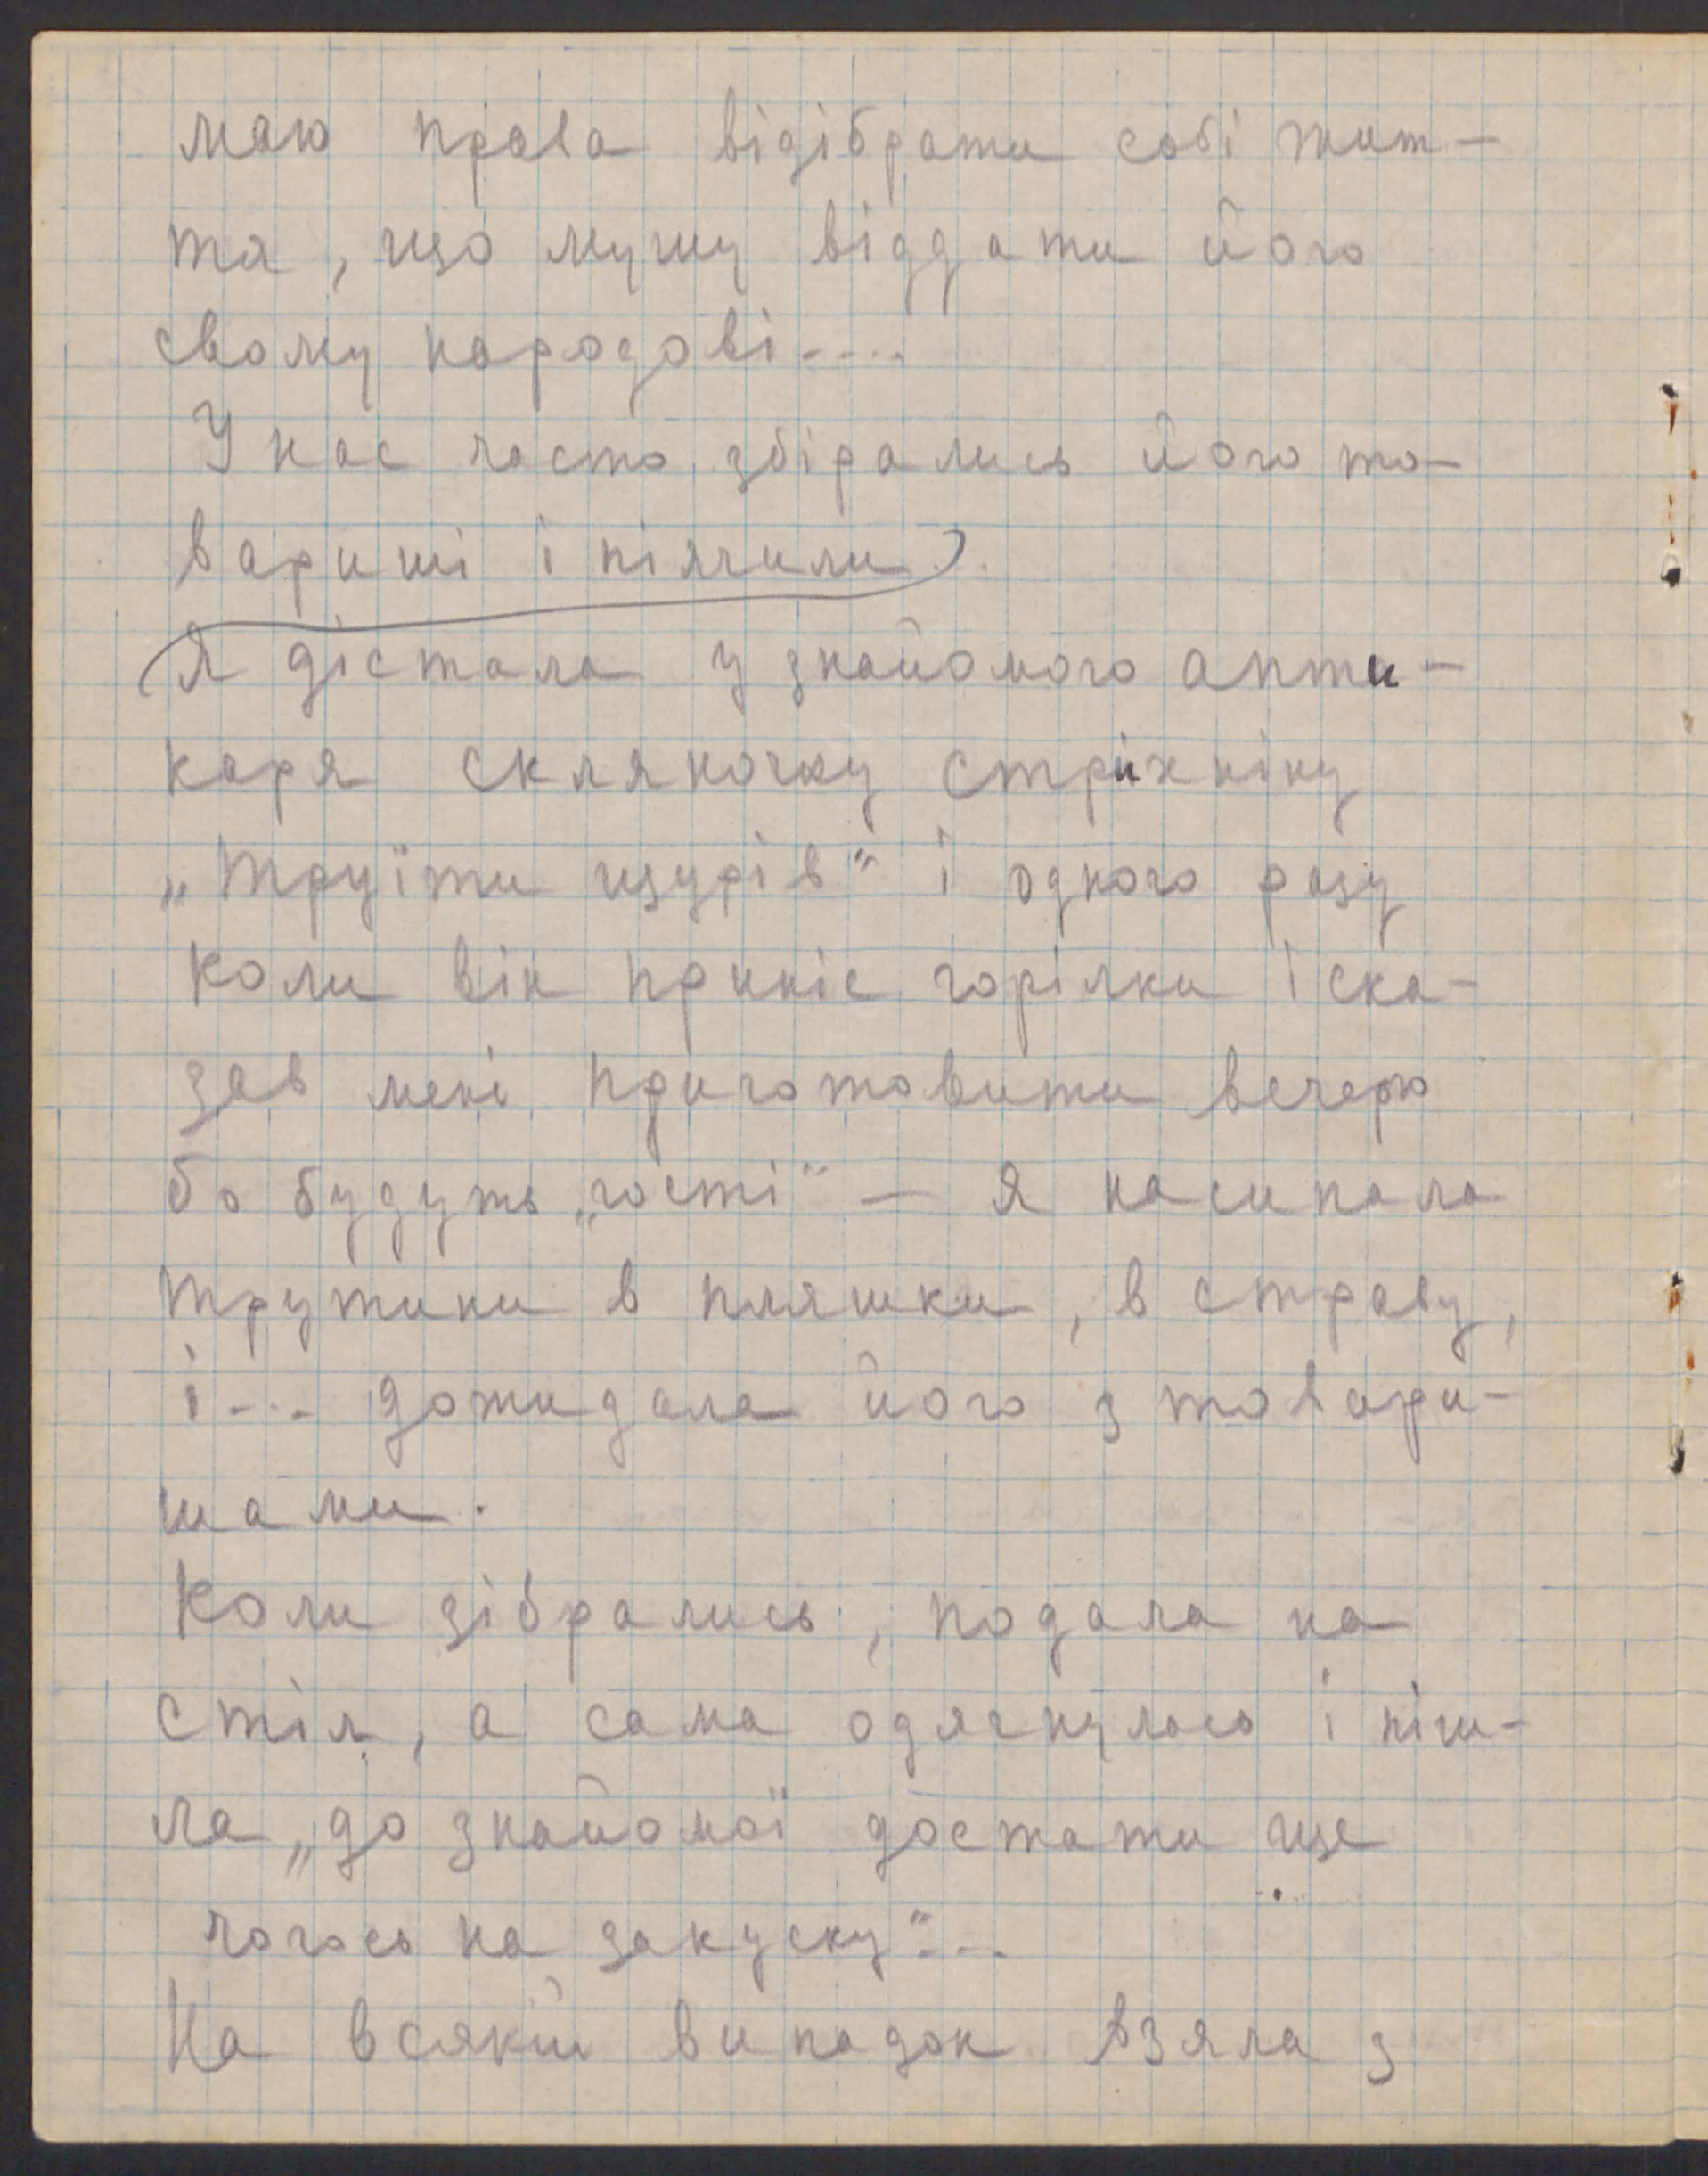 маю права відібрати собі жит-
тя, що мушу віддати його
свому народові....
У нас часто збірались його то-
вариші і піячили.
Я дістала у знайомого апти-
каря скляночку стрихніну
„труїти щурів“ і одного разу
коли він приніс горілки і ска-
зав мені приготовити вечерю
бо будуть „гості“ — я насипала
трутини в пляшки, в страву,
і... дожидала його з товари-
шами.
Коли зібрались, подала на
стіл, а сама одягнулась і піш-
ла „до знайомої достати ще
чогось на закуску“...
На всякий випадок взяла з